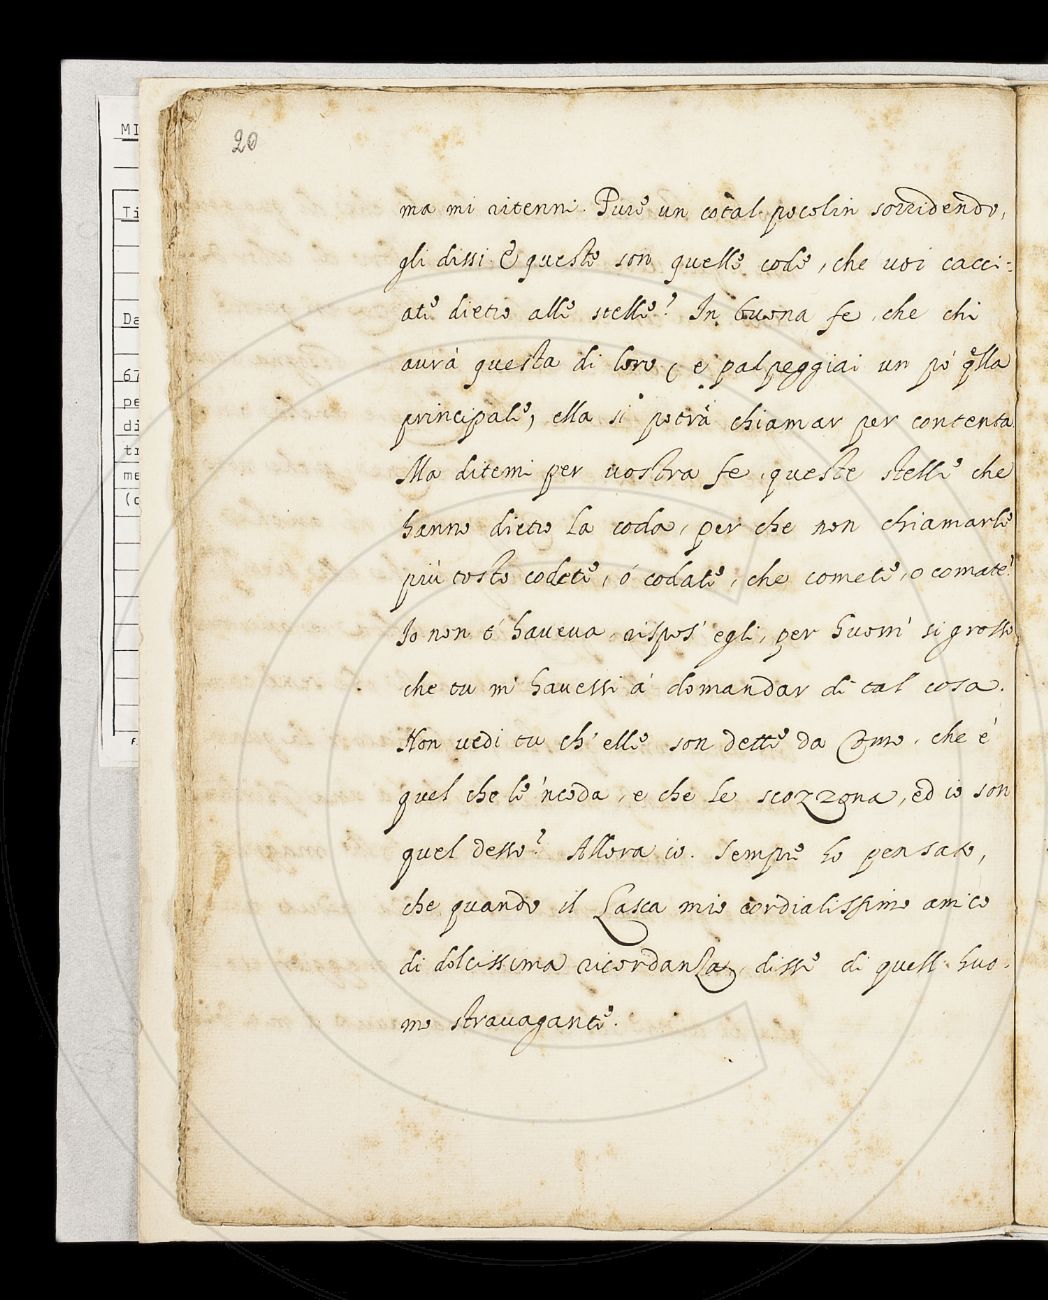 20
ma mi ritenni. Pure un cotal pocolin sorridendo,
gli dissi. E queste son quelle code, che voi cacci=
ate dietro alle stelle? In buona fe, che chi
avrà questa di loro, ( e palpeggiai un pò q̃lla
principale) ella si potrà chiamar per contenta
Ma ditemi per vostra fe, queste stelle che
hanno dietro la coda, per che non chiamarle
più tosto codete, ó codate, che comete, o comate?
Io non t'haveva, rispos' egli, per huom' si grosso
che tu m' havessi a' domandar di tal cosa.
Non vedi tu ch' elle son dette da Como, che è
quel che le 'ncoda, e che le scozzona, ed io son
quel desso? Allora io. Sempre ho pensato,
che quando il Lasca mio cordialissimo amico
di dolcissima ricordanza, disse di quell huo-
mo stravagante.
MI
Ti
Da
67
pe
di
ti
me
(c